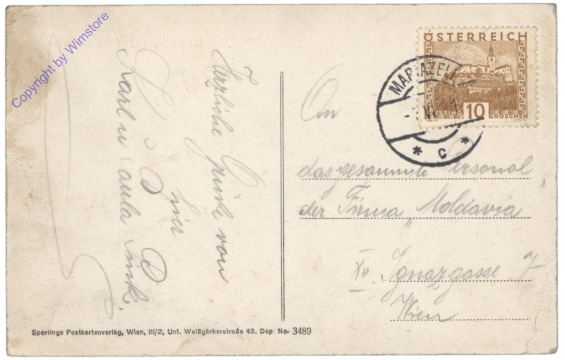 Copyright by Wimstore
Herzliche Grüße von
hier
Karl u Paula
ÖSTERREICH
10
GROSCHEN
MARIAZELL
* c *
An
das gesammte Personal
der Firma „Moldavia"
XII. Ignazgasse 7
Wien
Sperlings Postkartenverlag, Wien, III/2, Unt. Weißgärberstraße 43. Dep. No. 3489